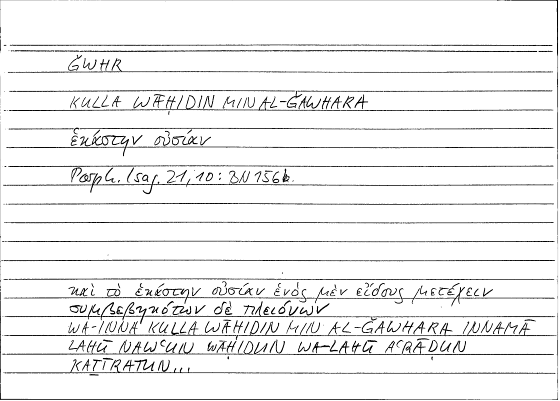 ǦWHR
KULLA WĀḤIDIN MIN AL-ǦAWHARA
ἑκάστην οὐσίαν
Porph. Isag. 21,10: BN 156b.
καὶ τὸ ἑκάστην οὐσίαν ἑνὸς μὲν εἴδους μετέχειν
συμβεβηκότων δὲ πλειόνων
WA-INNA KULLA WĀḤIDIN MIN AL-ǦAWHARA INNAMĀ
LAHŪ NAWʿUN WĀḤIDUN WA-LAHŪ AʿRĀḌUN
KAṮĪRATUN...